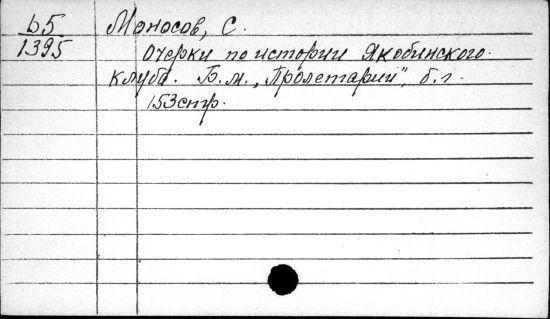 b5
1395
Моносов, С.
Очерки по истории Якобинского
клуба. Б.м., "Пролетарий", б.г.
153стр.